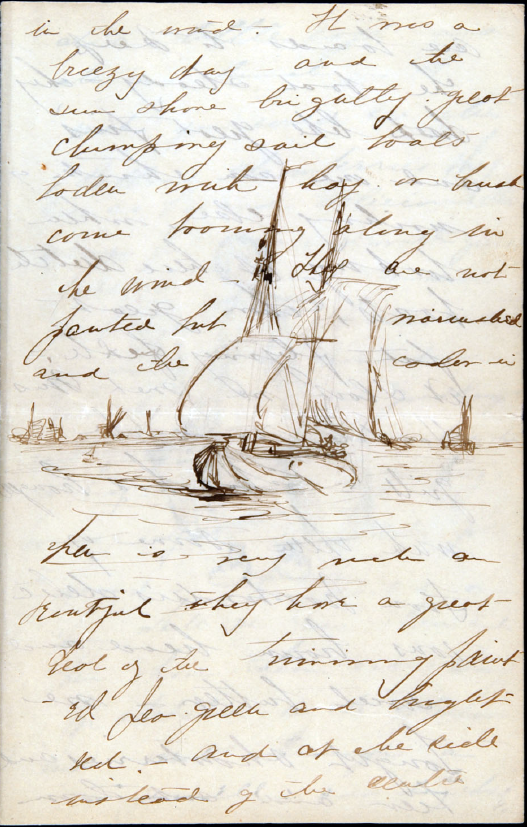 in the wind - It was a
breezy day - and the
sun shone brightly - great
clumping sail boats
loden with hay or brush
come looming along in
the wind - They are not
painted but varnished
and the color in
them is very rich and
beautiful they have a great
deal of the trimming paint
ed pea green and bright
red - and at the side
instead of the center